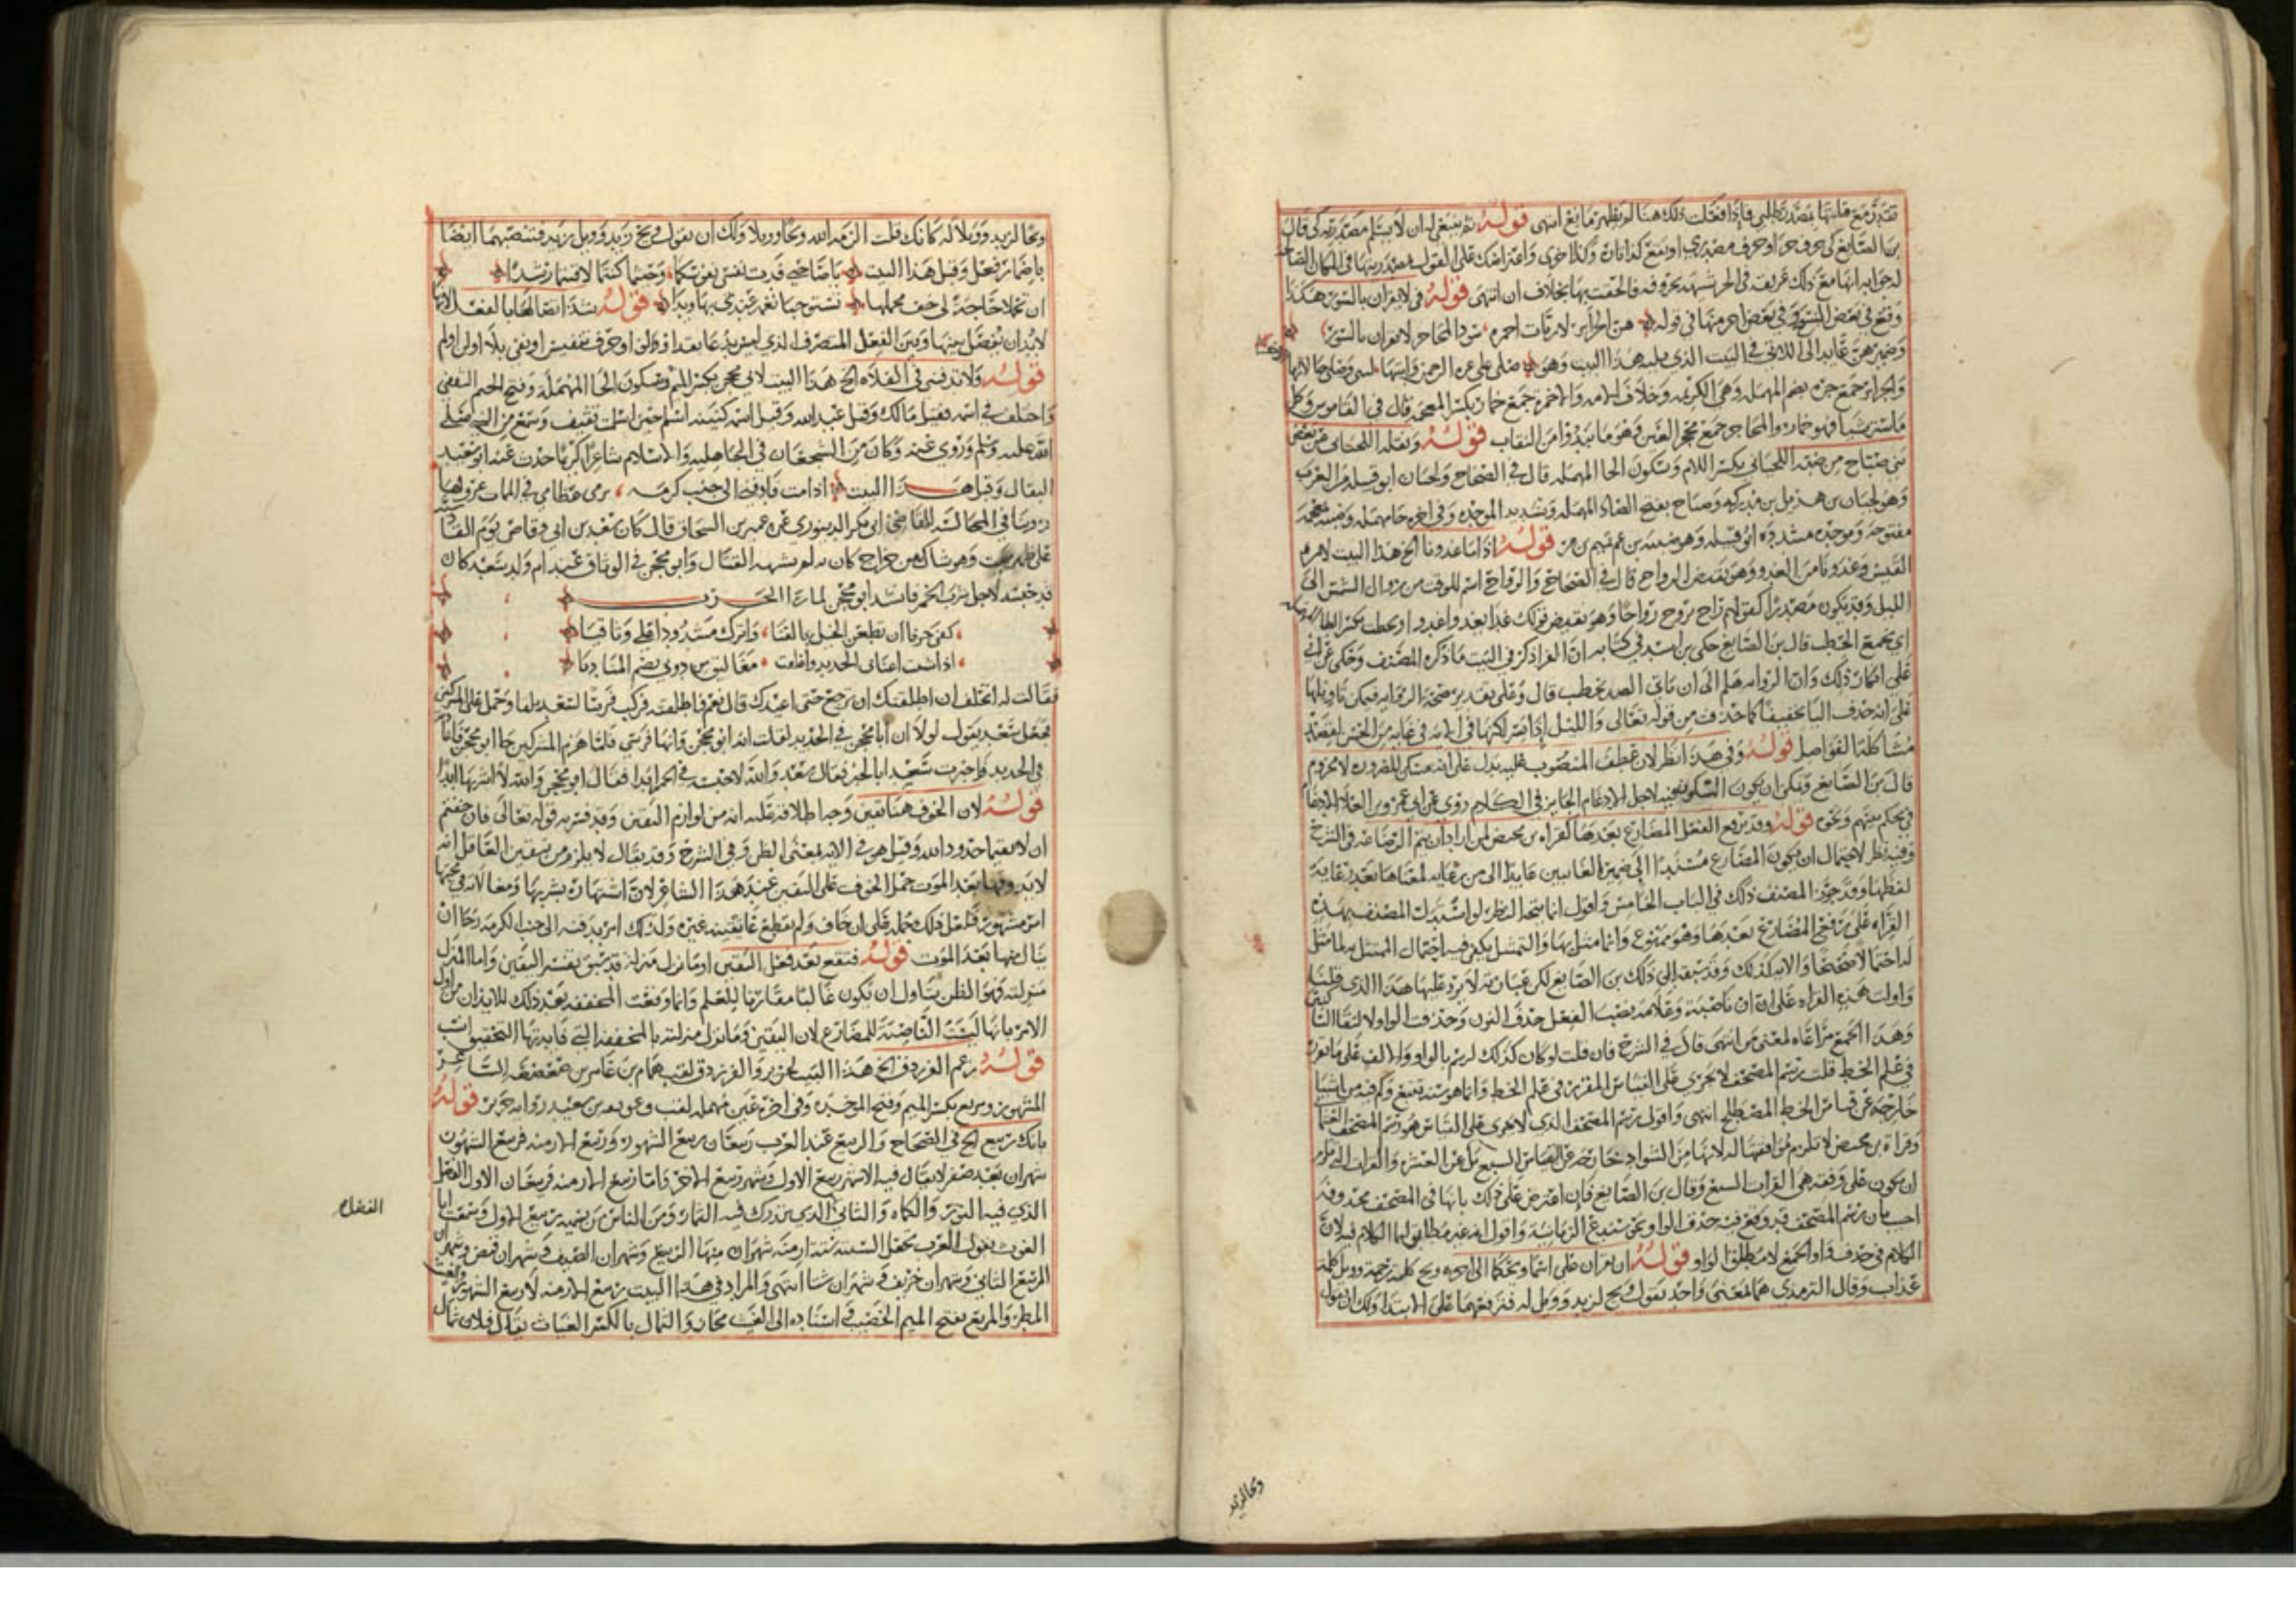 تقدم مع قلتها بمصدر طلبي فإذا فعلت ذلك هنا لم يظهر مانع انتهى قوله ثم ينبغي له ان لا يسلم مصدريته كي قال
بن الصائغ كي حرف جر او حرف مصدري
لجوابه انها مع ذلك بخلاف ان انتهى قوله لا يقرأن بالسور هكذا
وقع في بعض النسخ وفي بعض اخر منها في قوله هن الحرائر لا ربات احمرة سود المحاجر لا يقرأن بالسور
وضمير هن عايد الى اللاتي في البيت الذي يليه هذا البيت وهو صلى على عزة الرحمن وابنتها ليلى وصلى على جاراتها
والحرائر جمع حرة بضم المهملة وهي الكريمة وخلاف الامة والاحمرة جمع خمار بكسر المعجمة قال في القاموس وكل
ما ستر شيا فهو خماره والمحاجر جمع محجر العين وهو ما يبدوا من النقاب قوله ونقله اللحياني عن بعض
بني صباح من ضبة اللحياني بكسر اللام وسكون الحا المهملة قال في الصحاح ولحيان ابو قبيلة من العرب
وهو لحيان بن هذيل بن مدركة وصباح بفتح الصاد المهملة وتشديد الموحدة وفي اخره حا مهملة وضبة بمعجمة
مفتوحة وموحدة مشددة ابو قبيلة وهو ضبة بن عم تميم بن مر قوله اذا ما غدونا الخ هذا البيت لامرء
القيس وغدونا من الغدو وهو نقيض الرواح قال في الصحاح والرواح اسم للوقت من زوال الشمس الى
الليل وقد يكون مصدرا كقولهم راح يروح رواحا وهو نقيض قولك غدا يغدو غدوا ونحطب بكسر الطا المهملة
اي نجمع الحطب قال بن الصائغ حكى بن اسيد في كتابه ان الفرا ذكر في البيت ما ذكره المصنف وحكى عن ابي
علي انكار ذلك وان الرواية هلم الى ان ياتي الصيد نحطب قال وعلى تقدير صحة الرواية فيمكن تاويلها
على انه حذف اليا تخفيفا كما حذفت من قوله تعالى والليل اذا يسر لكنها في الاية في غاية من الحسن لقصد
مشاكلة الفواصل قوله وفي هذا نظر لان عطف المنصوب عليه يدل على انه مسكن للضرورة لا مجزوم
قال بن الصائغ ويمكن ان يكون السكون فيه لاجل الادغام الجايز في الكلام روي عن ابي عمرو بن العلاء الادغام
في يحكم بينهم ونحوه قوله وقد يرفع الفعل المضارع بعدها كقراءة بن محيصن لمن اراد ان يتم الرضاعة في الشرح
وفيه نظر لاحتمال ان يكون المضارع مسندا الى ضمير الغائبين عايدا الى من رعاية لمعناها بعد رعاية
لفظها وقد جوز المصنف ذلك في الباب الخامس واقول انما يتجه النظر لو استدل المصنف بهذه
القراءة على رفع المضارع بعدها وهو ممنوع وانما مثل بها والتمثيل يكفي فيه احتمال الممثل به لما مثل
له احتمالا صحيحا والاية كذلك وقد سبقه الى ذلك بن الصائغ لكن عبارته لا يرد عليها هذا الذي قلناه
واولت هذه القراءة على ان ان ناصبة وعلامة نصب الفعل حذف النون وحذفت الواو لالتقاء الساكنين
وهذا الجمع مراعاه لمعنى من انتهى قال في الشرح فان قلت لو كان كذلك لرسم بالواو والالف على ما تقرر
في علم الخط قلت رسم المصحف لا يجري على القياس المقرر في علم الخط وانما هو سنة تتبع وكم فيه من اشيا
خارجة عن قياس الخط المصطلح انتهى واقول رسم المصحف الذي لا يجري على القياس هو رسم المصحف العثماني
وقراءة بن محيصن لا تلزم موافقتها له لانها من الشواذ خارجة عن القياس السبع بل عن العشر والقراات التي يلزم
ان يكون على وفقه هي القراات السبع وقال بن الصائغ فان اعترض على ذلك بانها في المصحف محذوفة
اجيب بان رسم المصحف قد وقع فيه حذف الواو نحو سندع الزبانية واقول انه غير مطابق لما الكلام فيه لان
الكلام في حذف واو الجمع لا مطلق الواو قوله ان تقران على اسما ويحكما الى اخره ويح كلمة رحمة وويل كلمة
عذاب وقال الترمذي هما لمعنى واحد تقول ويح لزيد وويل له فترفعهما على الابتدا ولك ان تقول
ويحا لزيد
ويحا لزيد وويلا له كانك قلت الزمه الله ويحا وويلا ولك ان تقول ويح زيد وويل زيد فتنصبهما ايضا
باضمار فعل وقبل هذا البيت يا صاحبي فدت نفسي نفوسكما وحيثما كنتما لاقيتما رشدا
ان تحملا حاجة لي خف محملها تستوجبا نعمة عندي بها ويدا قوله شذ اتصالها بالفعل لانها
لا بد ان يفصل بينها وبين الفعل المتصرف الذي ليس بدعا بقد او لو او حرف تنفيس او نفي بلا او لن او لم
قوله ولا تدفنني في الفلاة الخ هذا البيت لابي محجن بكسر الميم وسكون الحا المهملة وفتح الجيم الثقفي
واختلف في اسمه فقيل مالك وقيل عبد الله وقيل اسمه كنيته اسلم حين اسلمت ثقيف وسمع من النبي صلى
الله عليه وسلم وروي عنه وكان من الشجعان في الجاهلية والاسلام شاعرا كريما حدث عنه ابو سعيد
البقال وقبل هذا البيت اذا مت فادفني الى جنب كرمة يروى عظامي في الممات عروقها
روينا في المجالسة للقاضي ابي بكر الدينوري عن عمير بن اسحاق قال كان سعد بن ابي وقاص يوم القادسية
على ظهر بيت وهو شاك من جراح كان به لم يشهد القتال وابو محجن في الوثاق عند ام ولد سعد كان
قد حبسه لاجل شرب الخمر فانشد ابو محجن لما راى الحرب
كفى حزنا ان تطعن الخيل بالقنا واترك مشدودا علي وثاقيا
اذا شئت اعناني الحديد واغلقت مغاليق من دوني تصم المناديا
فقالت له اتحلف ان اطلقتك ان ترجع حتى اعيدك قال نعم فاطلقته فركب فرسا لسعد بلقا وحمل على المشركين
فجعل سعد يقول لولا ان ابا محجن في الحديد لقلت انه ابو محجن وانها فرسي فلما هزم المشركين جا ابو محجن فاعادته
في الحديد واخبرت سعدا بالخبر فقال سعد والله لا حبسته في الخمر ابدا فقال ابو محجن والله لا اشربها ابدا
قوله لان الخوف هنا يقين وجه اطلاقه عليه انه من لوازم اليقين وقد فسر به قوله تعالى فان خفتم
ان لا يقيما حدود الله وقيل هو في الاية بمعنى الظن وفي الشرح وقد يقال لا يلزم من يقين العاقل انه
لا يذوقها بعد الموت حمل الخوف على اليقين عند هذا الشاعر لان اشتهاره بشربها ومغالاته في محبتها
امر مشهور فلعل ذلك حمله على ان خاف ولم يقطع بما يقينه غيره ولذلك امر بدفنه الى جنب الكرمة رجا ان
ينال منها بعد الموت قوله فتقع بعد فعل اليقين او ما نزل منزلته قد سبق تفسير اليقين واما المنزل
منزلته وهو الظن يتاول ان يكون غالبا مقاربا للعلم وانما وقعت المخففة بعد ذلك للايذان من اول
الامر بانها ليست الناصبة للمضارع لان اليقين وما نزل منزلته بالمخففة التي فايدتها التحقيق انسب
قوله زعم الفرزدق الخ هذا البيت لجرير والفرزدق لقب همام بن غالب بن صعصعة الشاعر
المشهور ومربع بكسر الميم وفتح الموحدة وفي اخره عين مهملة لقب وعوعة بن سعيد راوية جرير قوله
بانك ربيع الخ في الصحاح والربيع عند العرب ربيعان ربيع الشهور وربيع الازمنة فربيع الشهور
شهران بعد صفر لا يقال فيه الا شهر ربيع الاول وشهر ربيع الاخر واما ربيع الازمنة فربيعان الاول الفصل
الذي فيه النور والكماة والثاني الذي تدرك فيه الثمار ومن الناس من يسميه ربيع الاول وسمعت ابا
الفصل
الغوث يقول العرب تجعل السنة ستة ازمنة شهران منها الربيع وشهران الصيف وشهران قيض وشهران
الربيع الثاني وشهران خريف وشهران شتا انتهى والمراد في هذا البيت ربيع الازمنة لا ربيع الشهور والغيث
المطر والمريع بفتح الميم الخصيب واسناده الى الغيث مجاز والثمال بالكسر الغياث يقال فلان ثمال